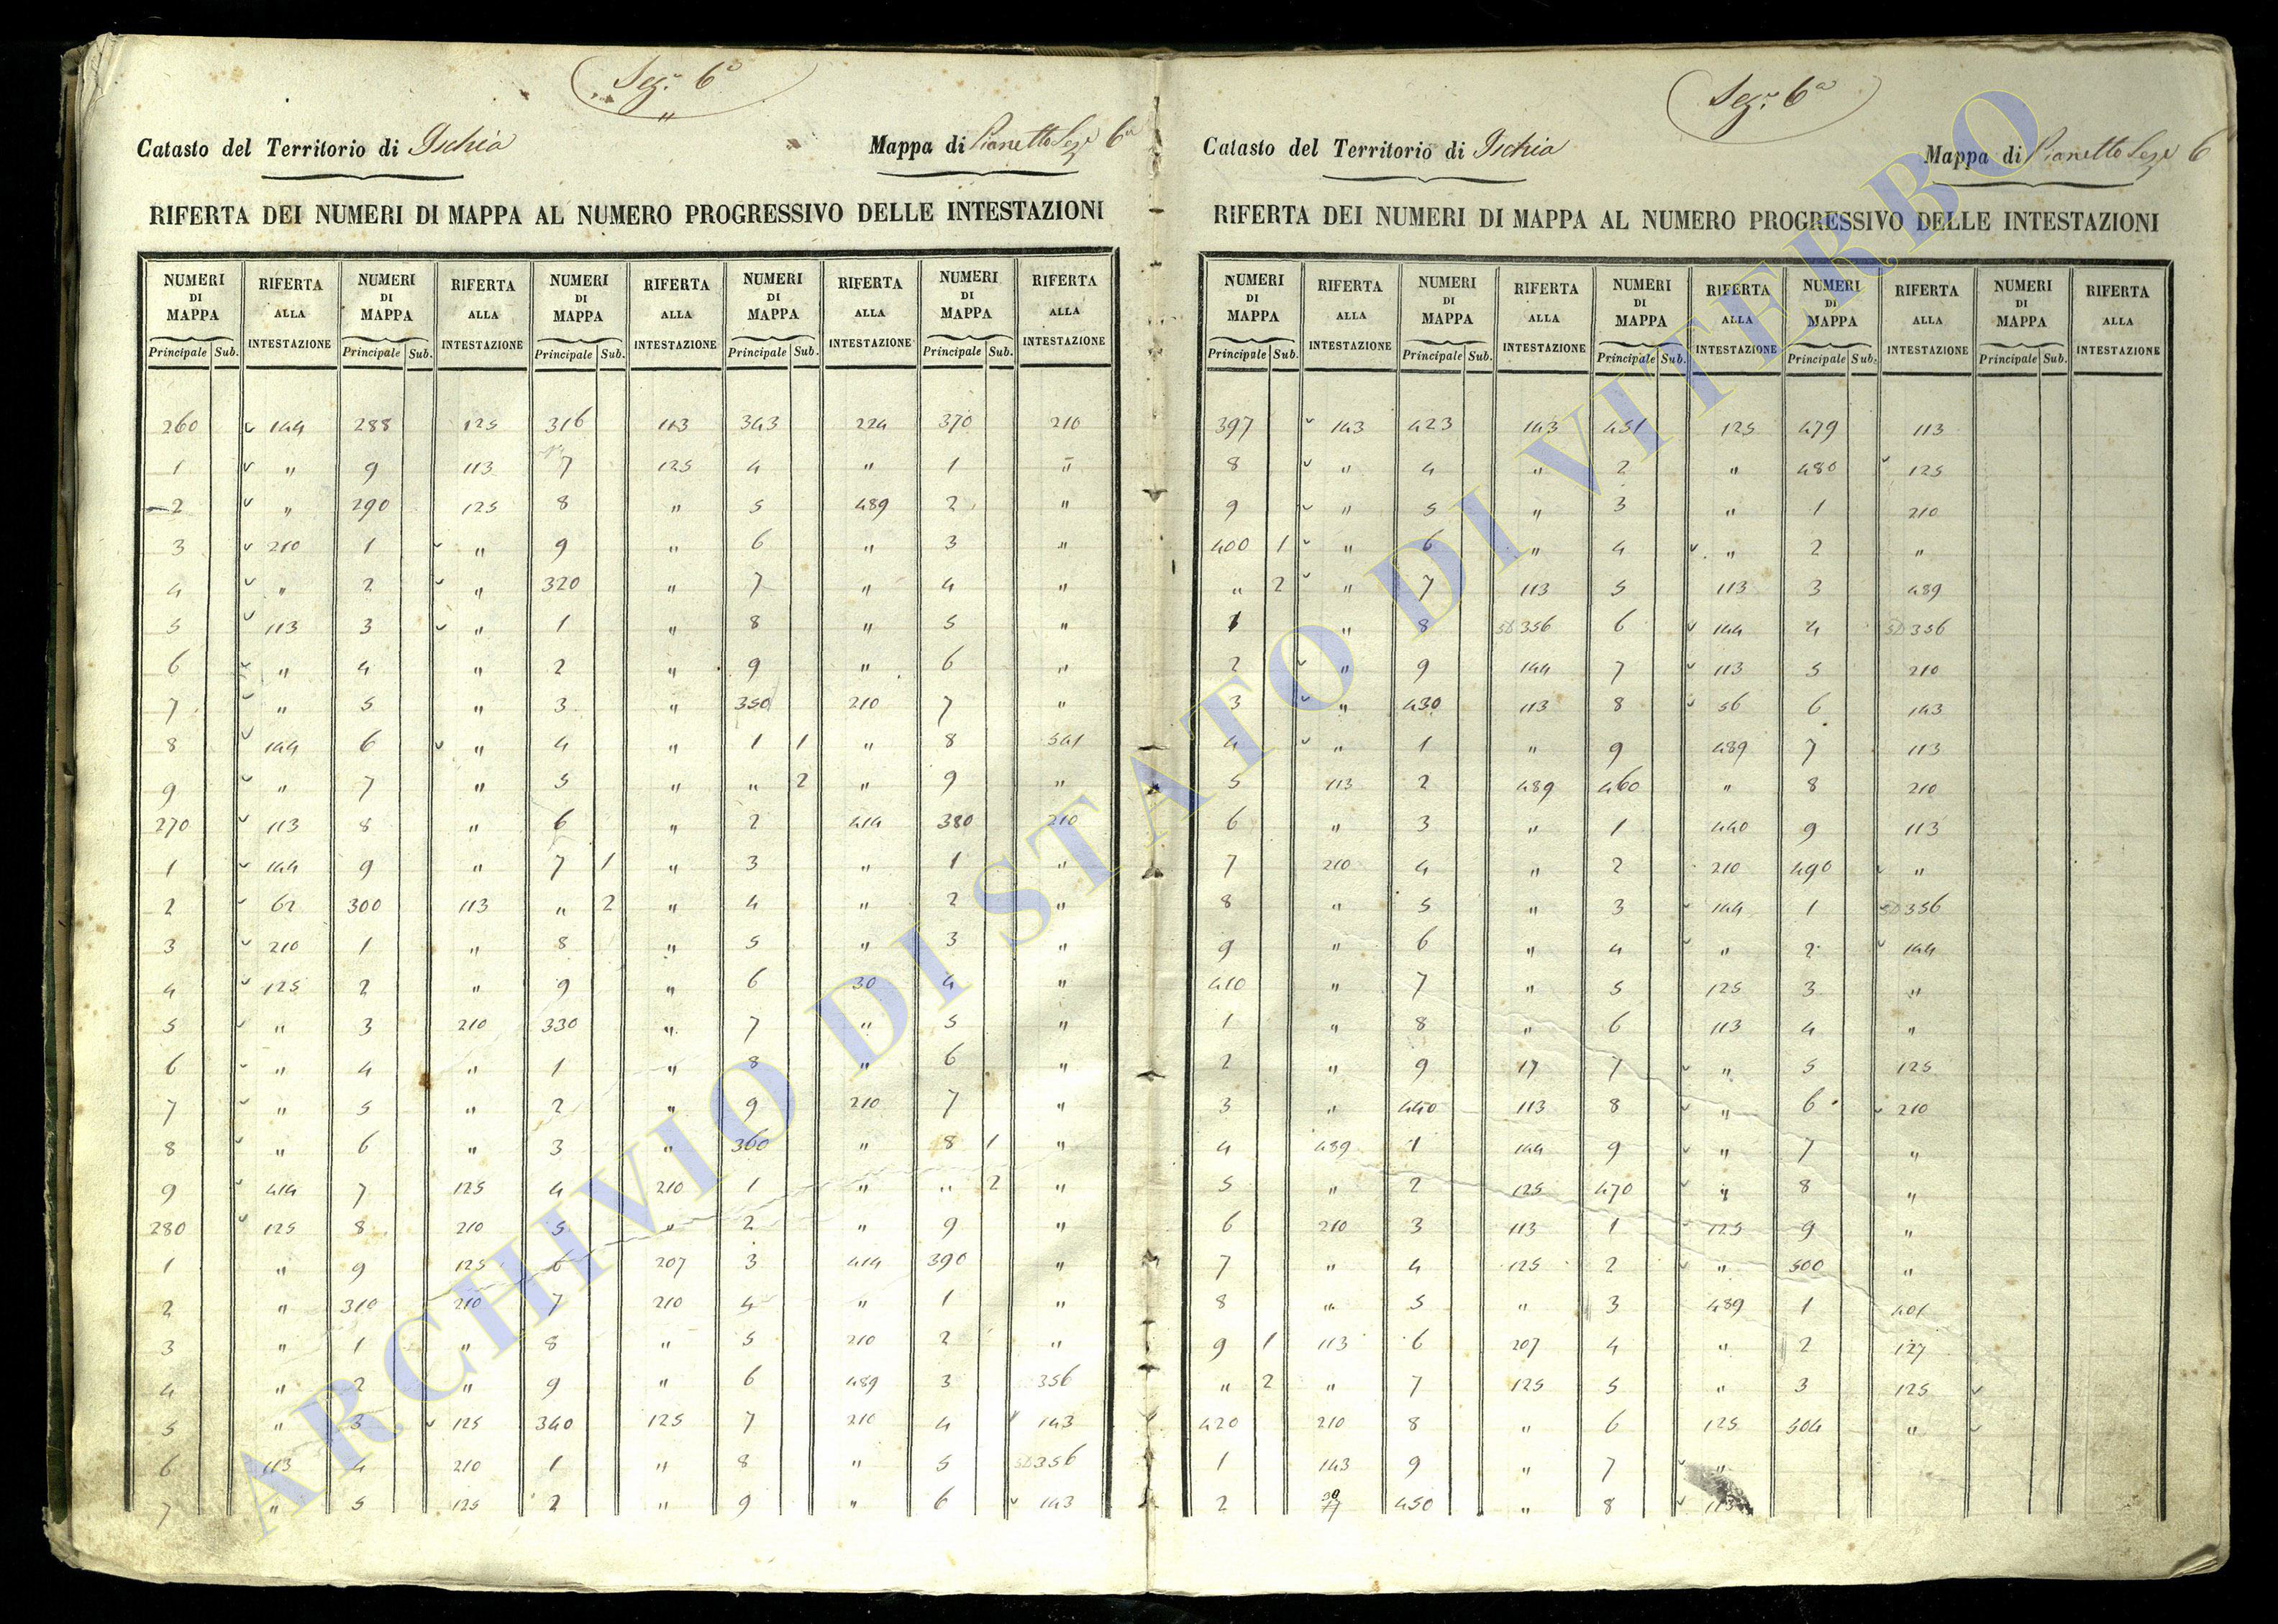 Sez.e 6a
Catasto del Territorio di Ischia Mappa di Pianetto Seze 6a
RIFERTA DEI NUMERI DI MAPPA AL NUMERO PROGRESSIVO DELLE INTESTAZIONI
NUMERI DI MAPPA RIFERTA ALLA INTESTAZIONE NUMERI DI MAPPA RIFERTA ALLA INTESTAZIONE NUMERI DI MAPPA RIFERTA ALLA INTESTAZIONE NUMERI DI MAPPA RIFERTA ALLA INTESTAZIONE NUMERI DI MAPPA RIFERTA ALLA INTESTAZIONE
Principale Sub. Principale Sub. Principale Sub. Principale Sub. Principale Sub.
260 144 288 125 316 113 343 224 370 210
1 " 9 113 7 125 4 " 1 "
2 " 290 125 8 " 5 489 2 "
3 210 1 " 9 " 6 " 3 "
4 " 2 " 320 " 7 " 4 "
5 113 3 " 1 " 8 " 5 "
6 " 4 " 2 " 9 " 6 "
7 " 5 " 3 " 350 210 7 "
8 144 6 " 4 " 1 1 " 8 541
9 " 7 " 5 " " 2 " 9 "
270 113 8 " 6 " 2 414 380 210
1 144 9 " 7 1 " 3 " 1 "
2 62 300 113 " 2 " 4 " 2 "
3 210 1 " 8 " 5 " 3 "
4 125 2 " 9 " 6 30 4 "
5 " 3 210 330 " 7 " 5 "
6 " 4 " 1 " 8 " 6 "
7 " 5 " 2 " 9 210 7 "
8 " 6 " 3 " 360 " 8 1 "
9 414 7 125 4 210 1 " " 2 "
280 125 8 210 5 " 2 " 9 "
1 " 9 125 6 207 3 414 390 "
2 " 310 210 7 210 4 " 1 "
3 " 1 " 8 " 5 210 2 "
4 " 2 " 9 " 6 489 3 356
5 " 3 125 340 125 7 210 4 143
6 113 4 210 1 " 8 " 5 356
7 " 5 125 2 " 9 " 6 143
Sez.e 6a
Catasto del Territorio di Ischia Mappa di Pianetto Seze 6
RIFERTA DEI NUMERI DI MAPPA AL NUMERO PROGRESSIVO DELLE INTESTAZIONI
NUMERI DI MAPPA RIFERTA ALLA INTESTAZIONE NUMERI DI MAPPA RIFERTA ALLA INTESTAZIONE NUMERI DI MAPPA RIFERTA ALLA INTESTAZIONE NUMERI DI MAPPA RIFERTA ALLA INTESTAZIONE NUMERI DI MAPPA RIFERTA ALLA INTESTAZIONE
Principale Sub. Principale Sub. Principale Sub. Principale Sub. Principale Sub.
397 143 423 143 451 125 479 113
8 " 4 " 2 " 480 125
9 " 5 " 3 " 1 210
400 1 " 6 " 4 " 2 "
" 2 " 7 113 5 113 3 489
1 " 8 356 6 144 4 356
2 " 9 144 7 113 5 210
3 " 430 113 8 56 6 143
4 " 1 " 9 489 7 113
5 113 2 489 460 " 8 210
6 " 3 " 1 440 9 113
7 210 4 " 2 210 490 "
8 " 5 " 3 144 1 356
9 " 6 " 4 " 2 144
410 " 7 " 5 125 3 "
1 " 8 " 6 113 4 "
2 " 9 17 7 " 5 125
3 " 440 113 8 " 6 210
4 489 1 144 9 " 7 "
5 " 2 125 470 " 8 "
6 210 3 113 1 125 9 "
7 " 4 125 2 " 500 "
8 " 5 " 3 489 1 401
9 1 113 6 207 4 " 2 127
" 2 " 7 125 5 " 3 125
420 210 8 " 6 125 504 "
1 143 9 " 7 "
2 450 " 8 113
ARCHIVIO DI STATO DI VITERBO